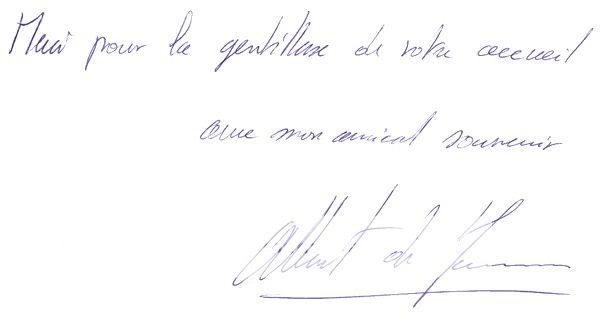 Merci pour la gentillesse de votre accueil
avec mon amical souvenir
Albert de